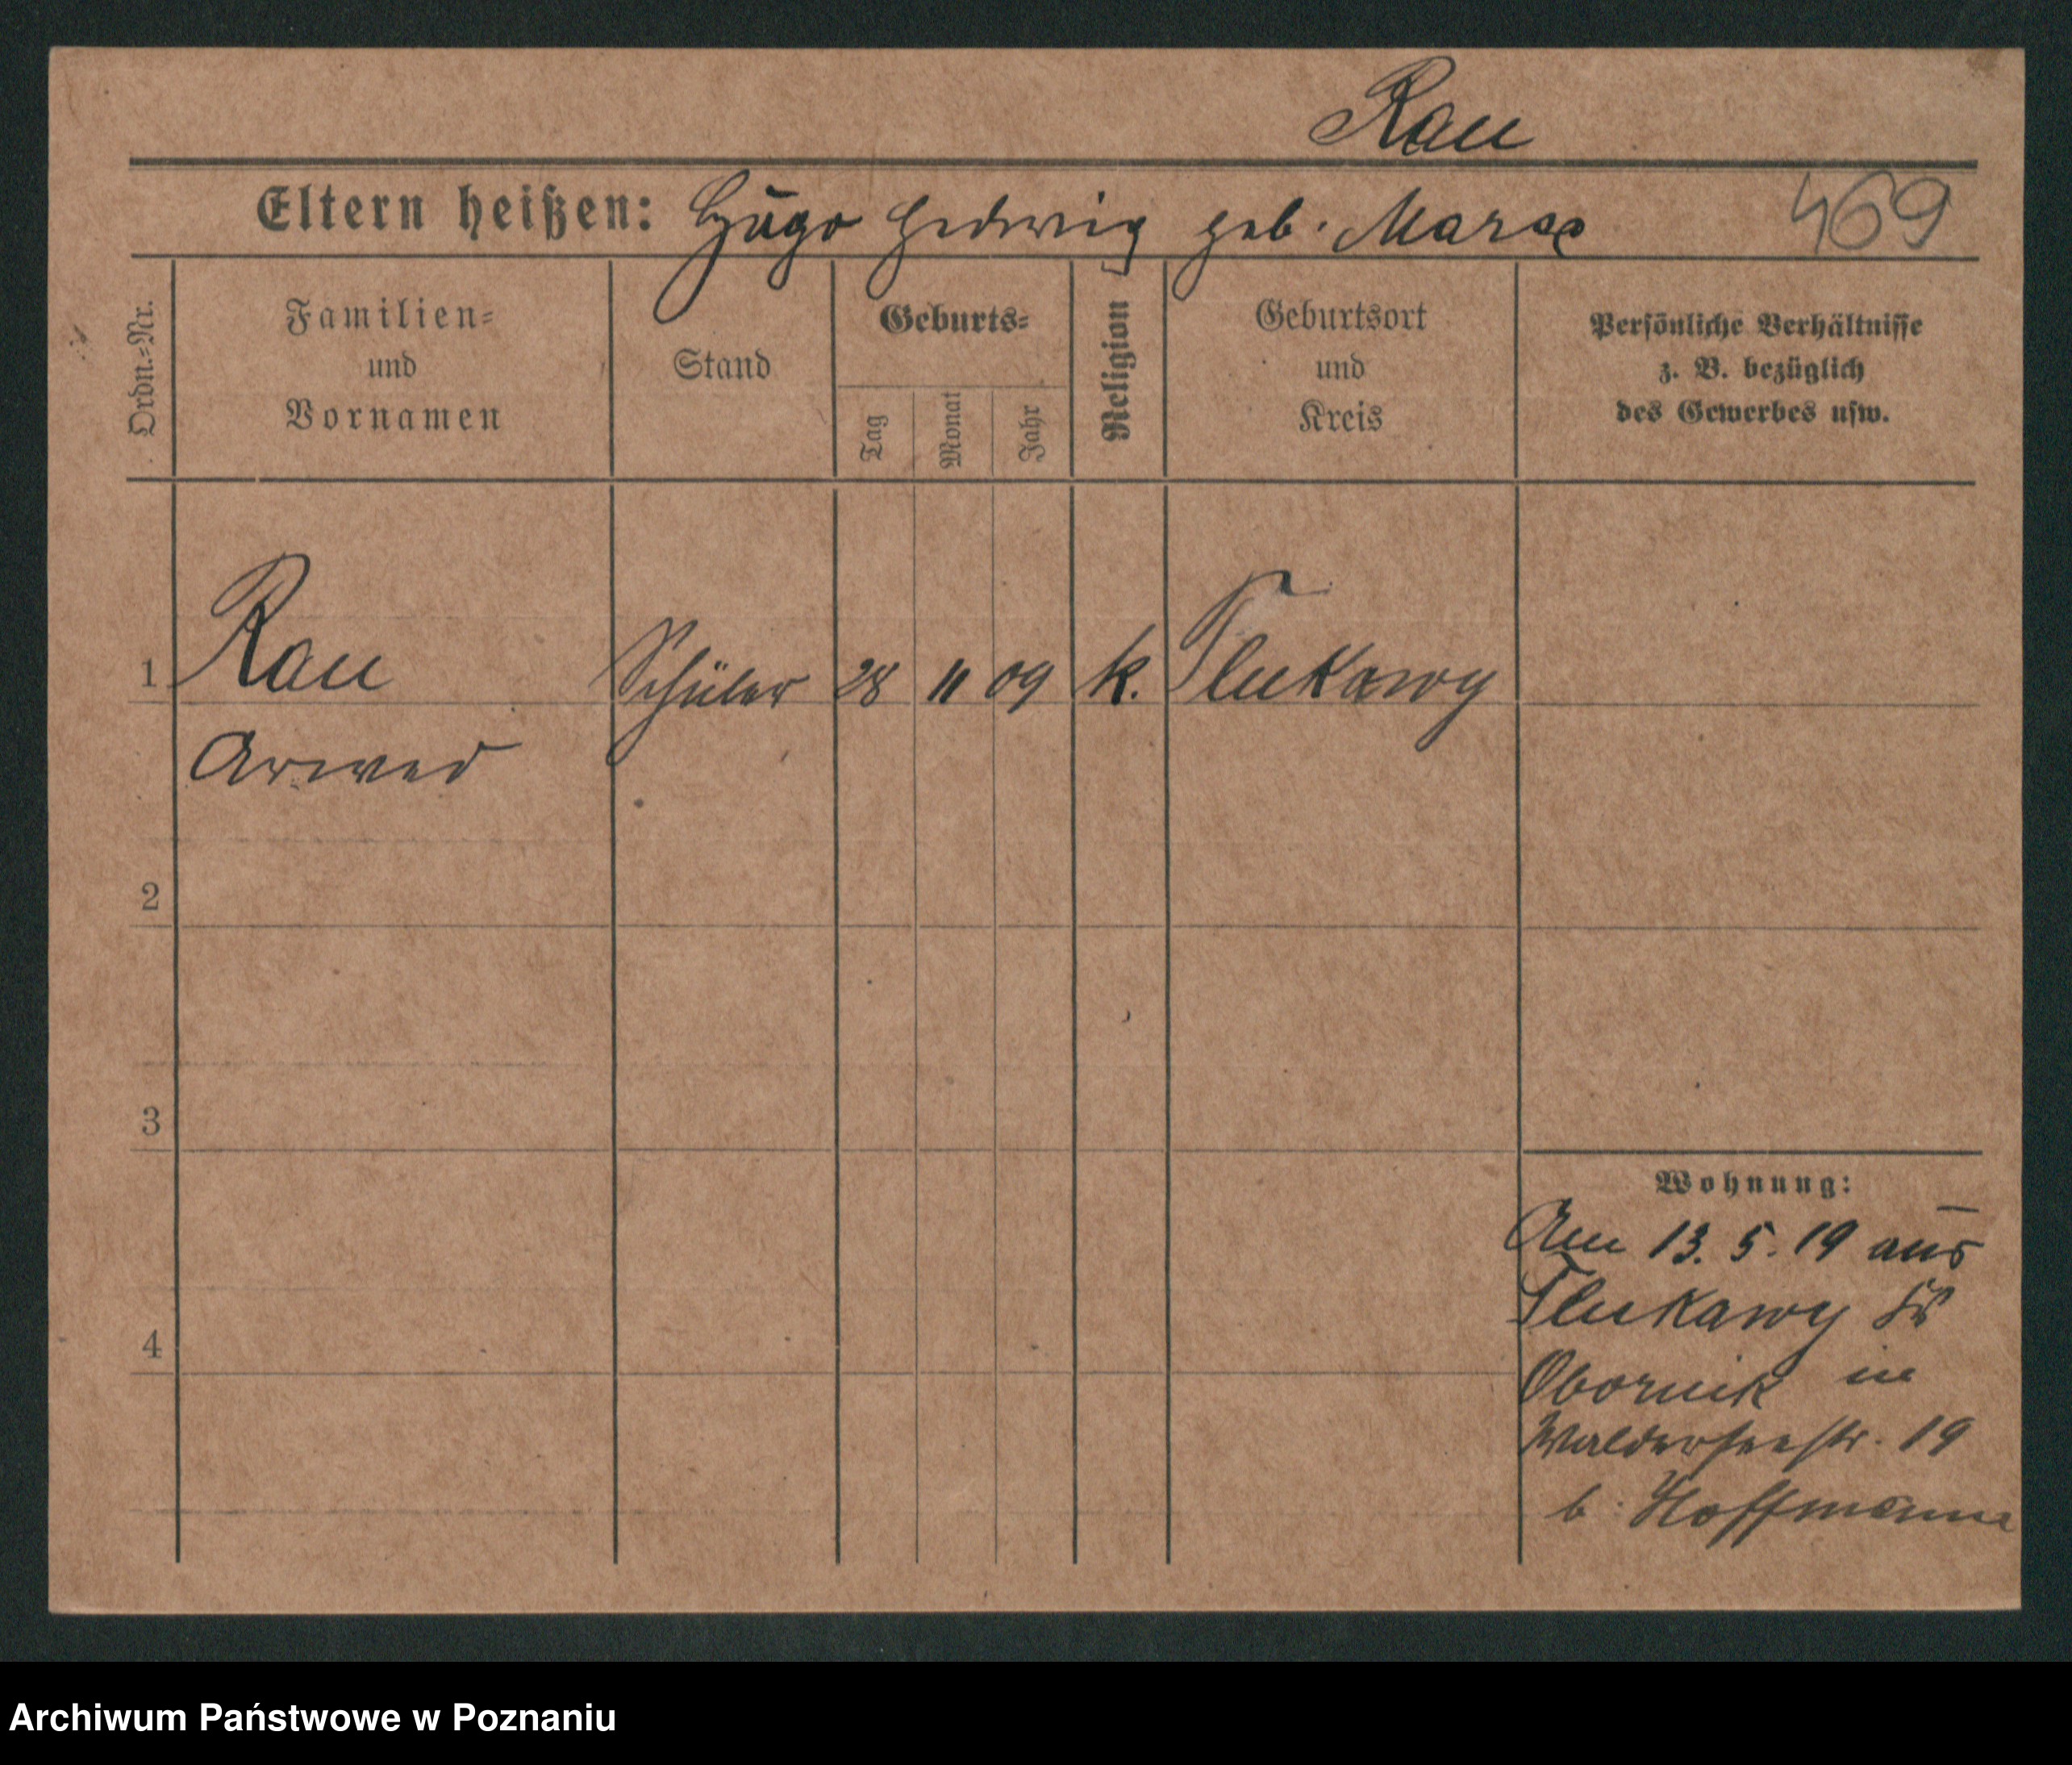 Rau
Eltern heißen: Hugo Hedwig geb. Marx
469
Ordn.=Nr.
Familien=
und
Vornamen
Stand
Geburts=
Tag
Monat
Jahr
Religion
Geburtsort
und
Kreis
Persönliche Verhältnisse
z. B. bezüglich
des Gewerbes usw.
1 Rau Schüler 28 11 09 k. Tlukawy
Arwed
2
3
4
Wohnung:
Am 13. 5. 19 aus
Tlukawy Kr
Obornik in
Walderseestr. 19
b. Hoffmann
Archiwum Państwowe w Poznaniu